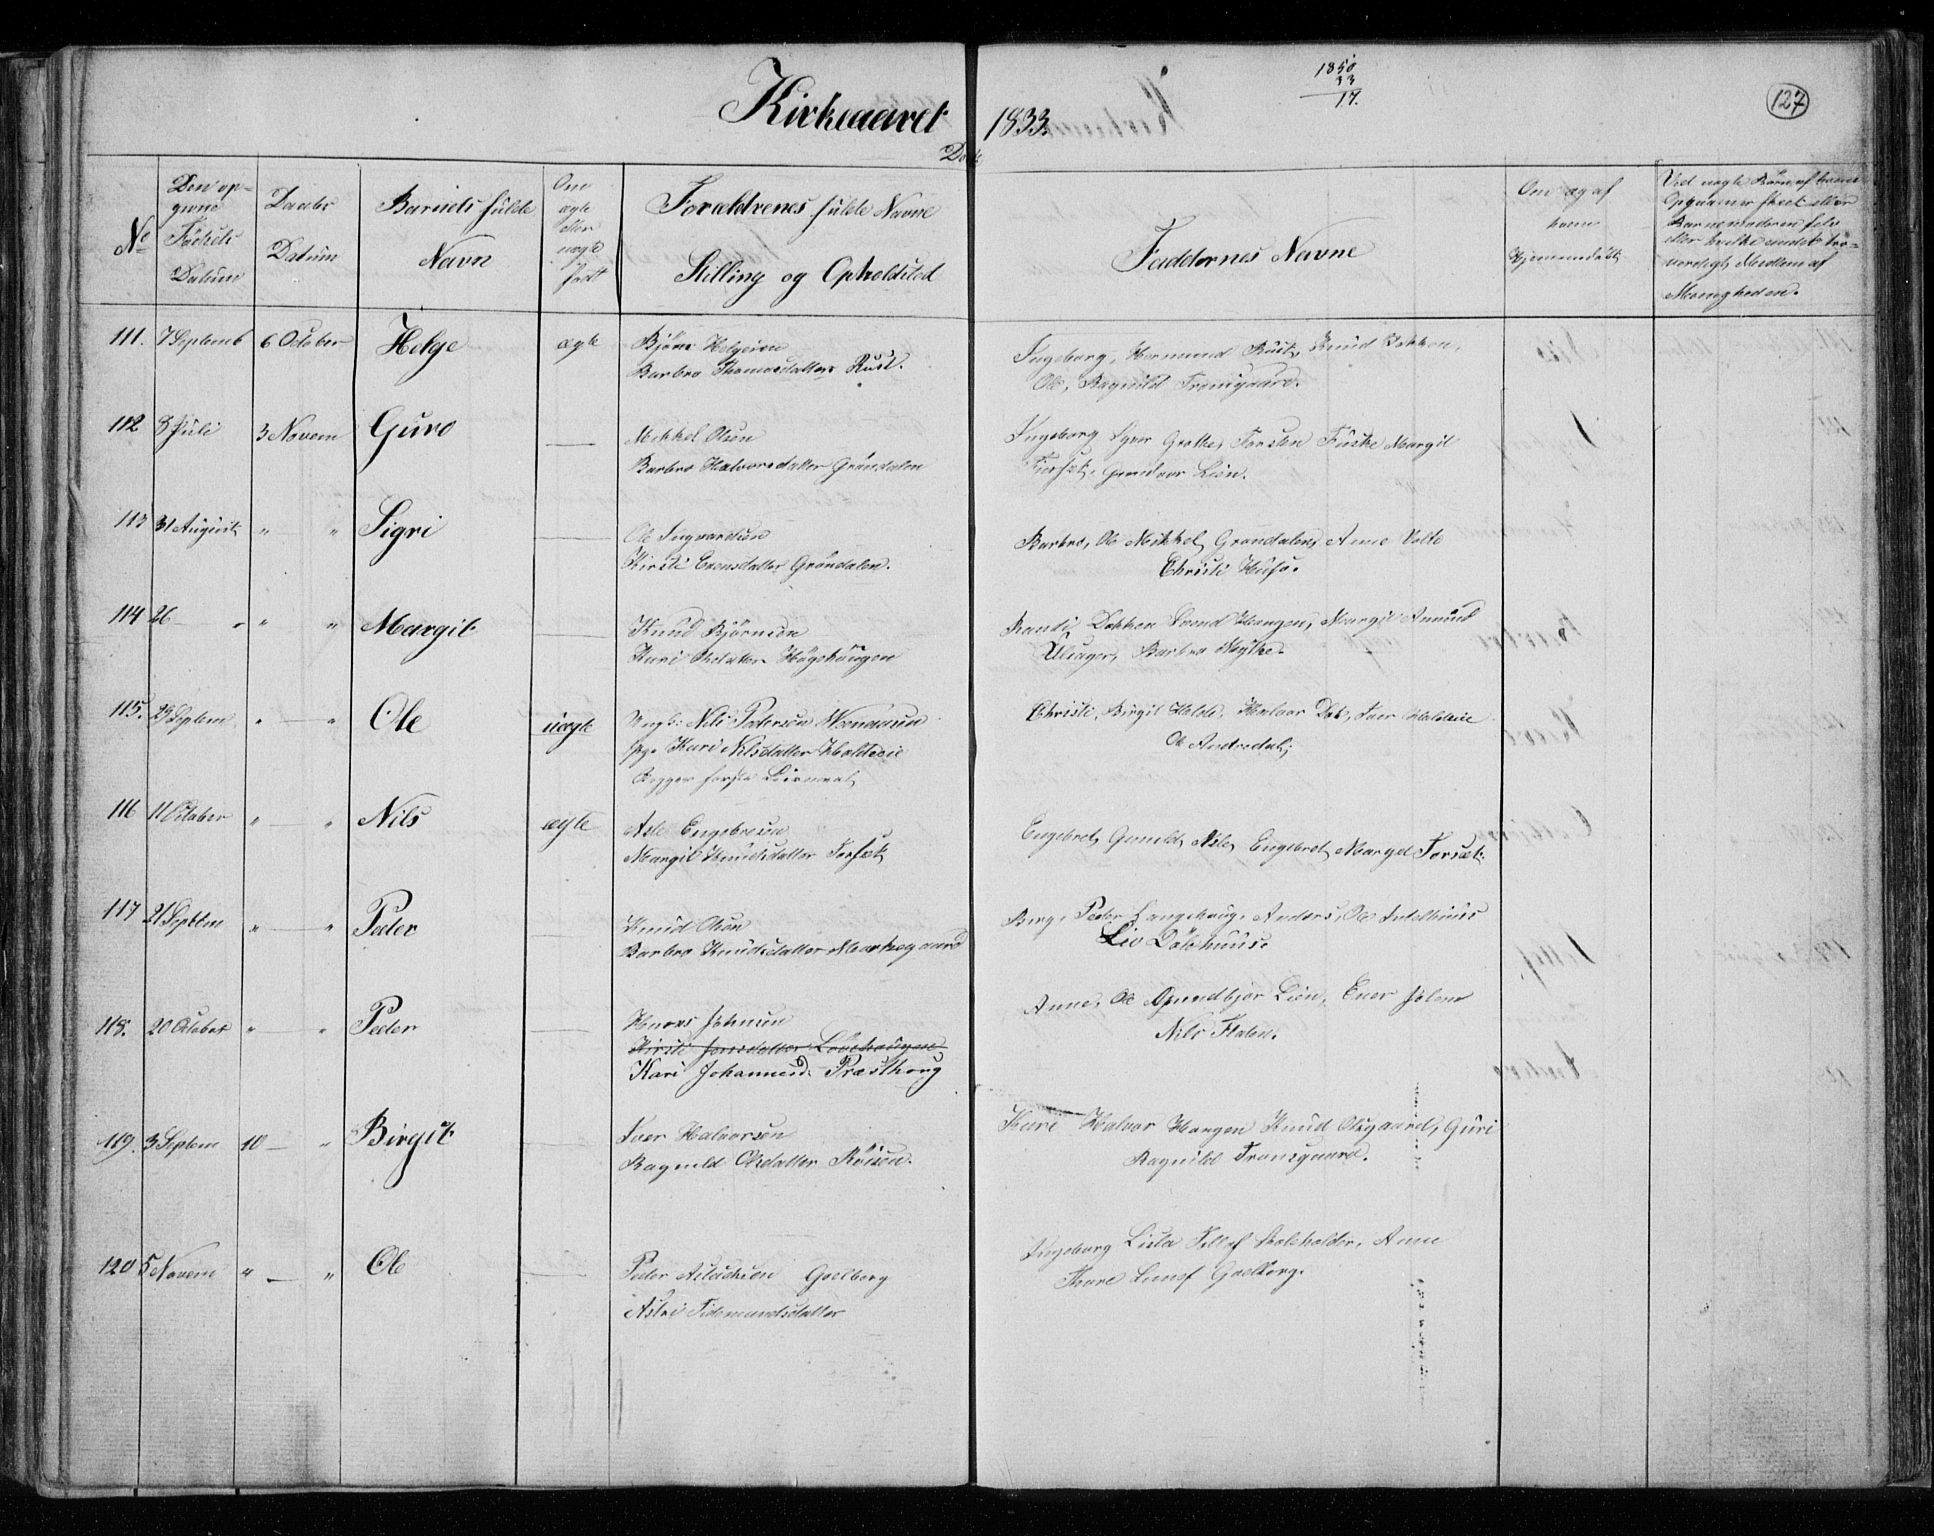 Kirkeaaret 1833.
1850
33
17.
127
Døbte
No
Den opgivne Fødsels Datum
Daabs Datum
Barnets fulde Navn
Om ægte eller uægte født
Forældrenes fulde Navne
Stilling og Opholdsted
Faddernes Navne
Om og af hvem hjemmedøbt
Ved uægte Børn af hvem
111. 7 Septemb 6 October Helge ægte Bjørn Helgesen
Barbro Thomasdatter Rust.
Ingeborg, Hermund Rust, Knud Dokken,
Ole, Ragnild Transgaard.
112 8 Juli 3 Novem Guro — Mekkel Olsen
Barbro Halvorsdatter Grøndalen
Ingeborg Iver Grøthe, Torsten Fuske Margit
Torset, Gundvor Lien.
113 31 August " " Sigri — Ole Ingvardsen
Kirsti Evensdatter Grøndalen.
Barbro, Ole Mikkel, Grøndalen, Anne Volte
Christi Hufs.
114 26 — " " " Margit — Knud Bjørnsen
Kari Olsdatter Høgehaugen
Randi, Dokken Svend Haugen, Margit Amund
Ulsager, Barbro Mythe.
115. 29 Septem " — " Ole uægte Ungk: Nils Pedersen
Pg. Kari Nilsdatter Holdeie
Begges første Leiermaal
Christi, Birgit Holde, Halvor Dok, Iver Holdeie
Ole Andredal,
116 11 October " — " Nils ægte Asle Engebresen
Margit Knudsdatter Torset
Engebret, Gunild, Asle, Engebret, Margit Torset.
117 21 Septem " — " Peder — Knud Olsen
Barbro Knudsdatter Markegaard
Berg, Peder Langehaug, Anders, Ole
Liv Dølehuus.
118. 20 October " — " Peder — Hans Johnsen
Kirsti Jonsdatter Løvehaugen
Kari Johannesd. Præsthoug
Anne, Ole Gundbjør Lien, Ener
Nils Flaten.
119. 3 Septem 10 — " Birgit — Iver Halvorsen
Ragnild Olsdatter Røisen.
Kari Halvor Haugen Knud Olsgaard, Guri
Ragnild Transgaard.
120 5 Novem " — " Ole — Peder Aslachsen Goelberg
Astri Tidemandsdatter
Ingeborg Lista Tollef Skoleholder, Anne
Thore Goelberg.